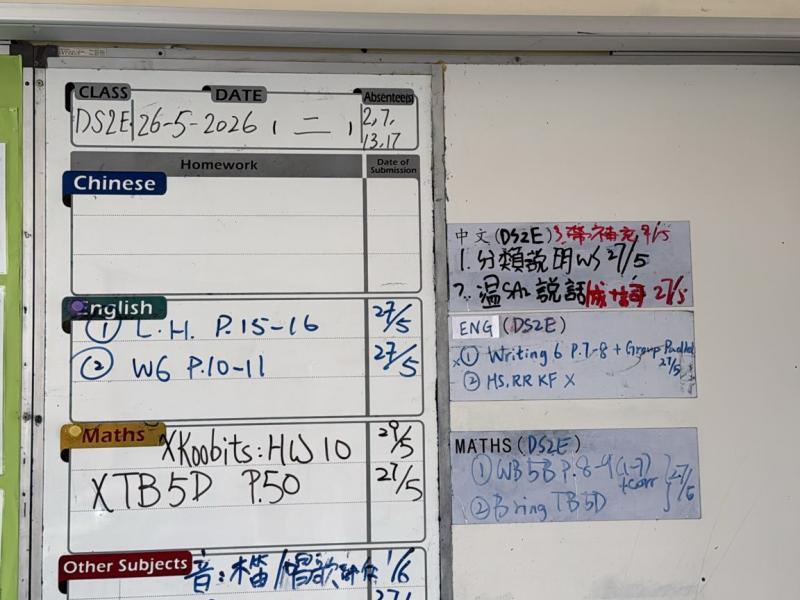 CLASS DATE Absentee(s)
DS2E 26-5-2026, 二, 2,7,
13,17
Homework Date of Submission
Chinese
English
① L.H. P.15-16 27/5
② W6 P.10-11 27/5
Maths
X Koobits: HW 10 29/5
X TB 5D P.50 27/5
Other Subjects
音: 1/6
中文(DS2E)
1. 分類說明WS 27/5
2. 温SA2 說話 27/5
ENG (DS2E)
① Writing 6 P.7-8 + Group Padlet
27/5
② HS. RR KF X
MATHS (DS2E)
① WB 5B P.8-9 (1-7)
+corr
② Bring TB5D